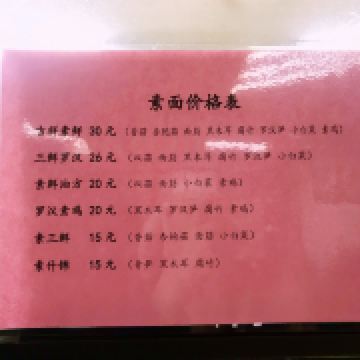 素面价格表
吉鲜素鲜 30元 (香菇 杏鲍菇 面筋 黑木耳 腐竹 罗汉笋 小白菜 素鸡)
三鲜罗汉 26元 (双菇 面筋 黑木耳 腐竹 罗汉笋 小白菜)
素鲜油方 20元 (双菇 面筋 小白菜 素鸡)
罗汉素鸡 20元 (黑木耳 罗汉笋 腐竹 素鸡)
素三鲜 15元 (香菇 杏鲍菇 面筋 小白菜)
素什锦 15元 (香笋 黑木耳 腐竹)